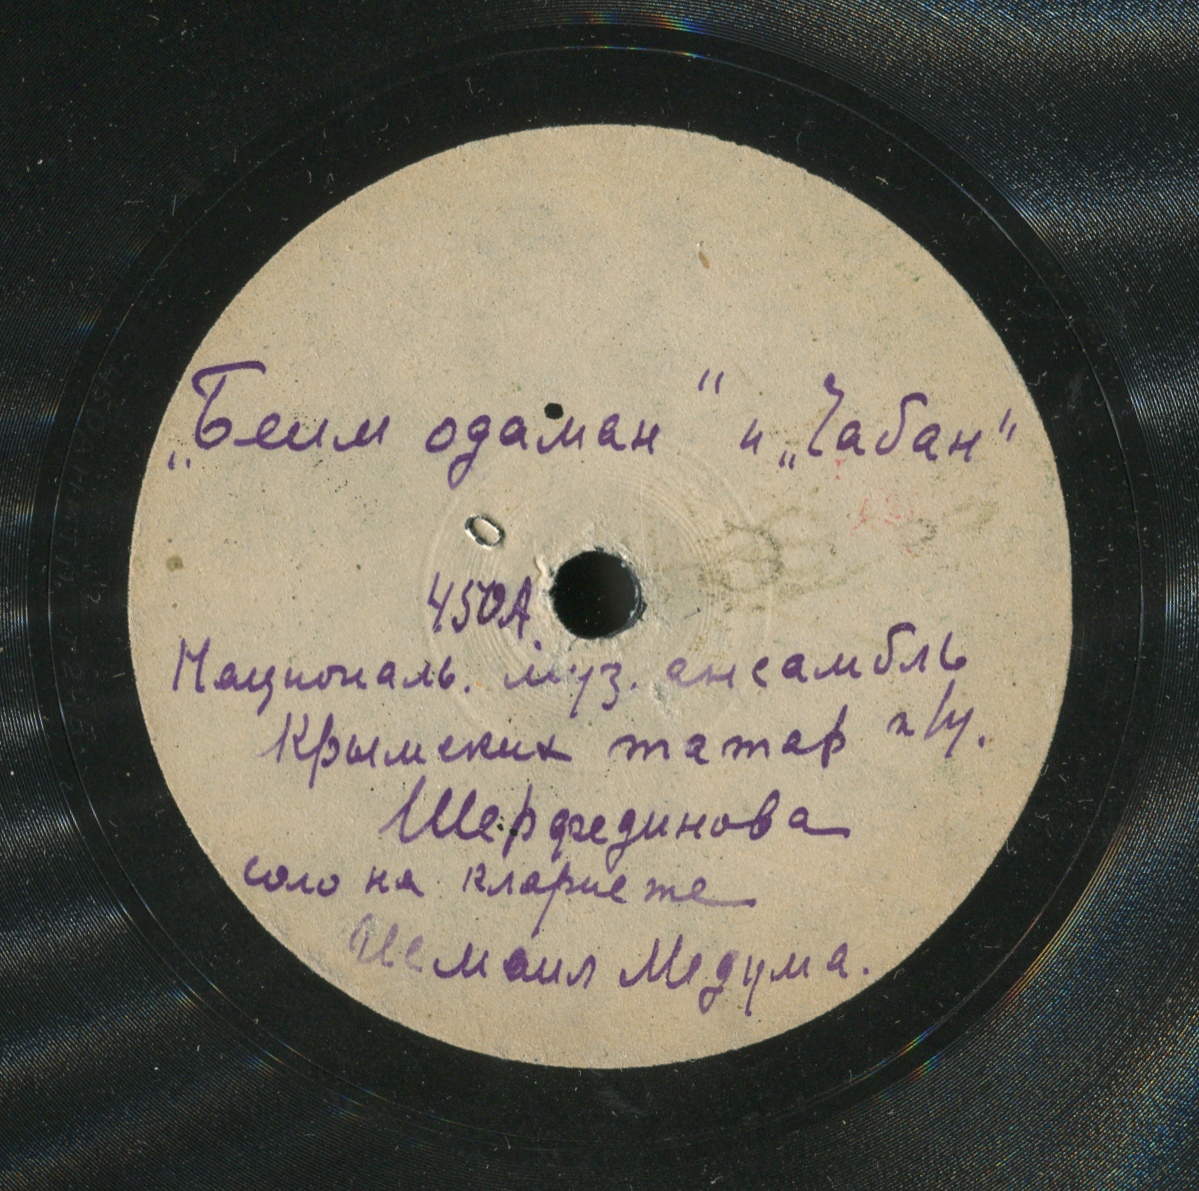 „Беим одаман" и „Чабан"
450А
Националь. муз. ансамбль
Крымских татар п/у.
Шерфединова
соло на кларнете
Исмаил Медума.